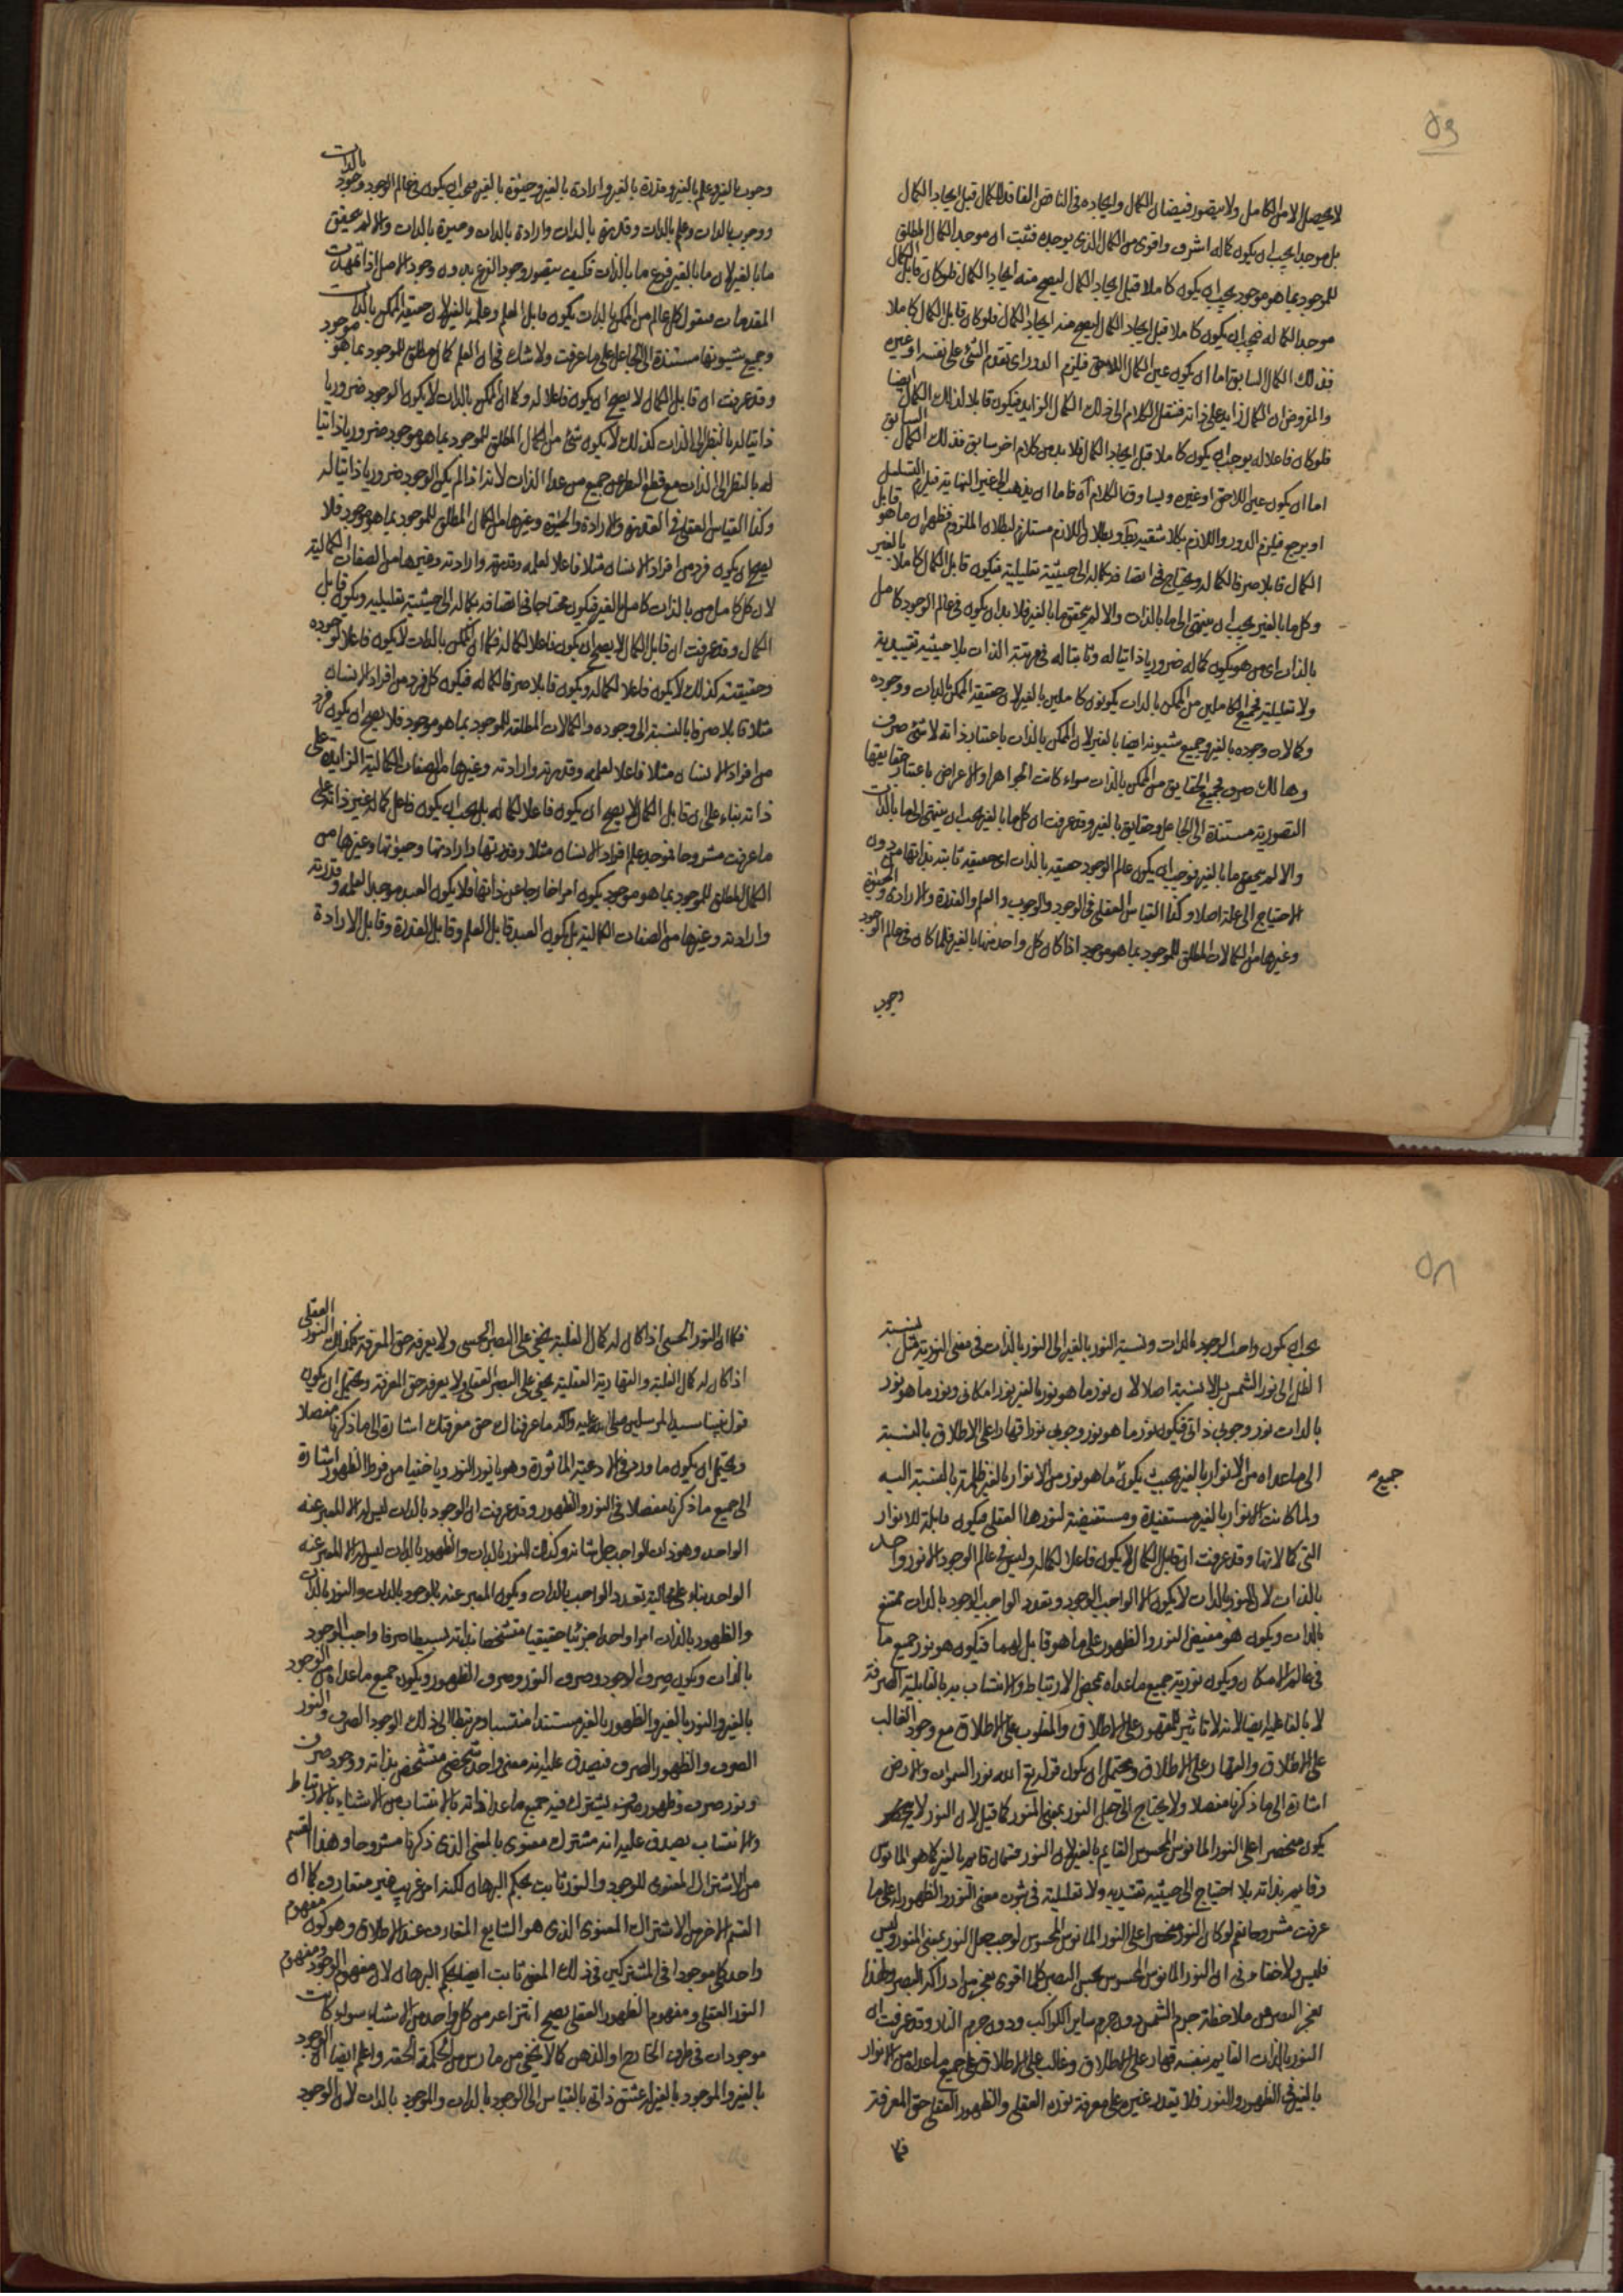 ٥٩
لا يحصل الا من الكامل ولا يتصور فيضان الكمال وايجاده في الناقص الفاقد للكمال قبل ايجاد الكمال
بل موجدا يجب ان يكون كماله اشرف واقوى من الكمال الذي يوجده فثبت ان موجد الكمال المطلق
للموجود بما هو موجود يجب ان يكون كاملا قبل ايجاد الكمال ليصح منه ايجاد الكمال فلو كان قابل الكمال
موجدا لكماله فيجب ان يكون كاملا قبل ايجاد الكمال ليصح منه ايجاد الكمال فلو كان قابل الكمال كاملا
فذلك الكمال السابق اما ان يكون عين الكمال اللاحق فيلزم الدور اى تقدم الشئ على نفسه او غيره
والمفروض ان الكمال زايد على ذاته فننقل الكلام الى ذلك الكمال الزايد فيكون قابلا لذلك الكمال ايضا
فلو كان فاعلا له يوجب ان يكون كاملا قبل ايجاد الكمال فلا بد من كلام اخر سابق فذلك الكمال السابق
اما ان يكون عين اللاحق او غيره ويساوق الكلام آه فاما ان يذهب الى غير النهاية فيلزم التسلسل
او يرجع فيلزم الدور واللازم بكلا شقيه بط وبطلان اللازم مستلزم لبطلان الملزوم فظهر ان ما هو قابل
الكمال قابلا صرفا لكماله ويحتاج في اتصافه بكماله الى حيثية تعليلية فيكون قابل الكمال كاملا بالغير
وكل ما بالغير يجب ان ينتهى الى ما بالذات والا لم يتحقق ما بالغير فلا بد ان يكون في عالم الوجود كامل
بالذات اى من هو يكون كماله ضروريا ذاتيا له وثابتا له في مرتبة الذات بلا حيثية تقييدية
ولا تعليلية فجميع الكاملين من الممكن بالذات يكونون كاملين بالغير لان حقيقة الممكن بالذات ووجوده
وكمالات وجوده بالغير وجميع شيونه ايضا بالغير لان الممكن بالذات باعتبار ذاته لا شئ صرف
وهالك صرف فجميع الحقايق من الممكن بالذات سواء كانت الجواهر او الاعراض باعتبار حقايقها
التصورية مستندة الى الجاعل وحقايق بالغير وقد عرفت ان كل ما بالغير يجب ان ينتهى الى ما بالذات
والا لم يتحقق ما بالغير فوجب ان يكون عالم الوجود حقيقه بالذات اى حقيقه ثابته بذاتها من دون
الاحتياج الى علة اصلا وكذا القياس العقلى في الوجود والوجوب والعلم والقدرة والارادة والحيوة
وغيرها من الكمالات المطلق للموجود بما هو موجود اذا كان كل واحد منها بالغير فلما كان في عالم الوجود
وجوب
وجوب بالغير وعلم بالغير وقدرة بالغير وارادة بالغير وحيوة بالغير فيجب ان يكون في عالم الوجود وجود بالذات
ووجوب بالذات وعلم بالذات وقدرة بالذات وارادة بالذات وحيوة بالذات والا لم يتحقق
ما بالغير لان ما بالغير فرع ما بالذات فكيف يتصور وجود الفرع بدون وجود الاصل اذا تمهدت
المقدمات فنقول كل عالم من الممكن بالذات يكون قابل العلم وعلمه بالغير لان حقيقة الممكن بالذات
وجميع شيونها مستندة الى الجاعل على ما عرفت ولا شك في ان العلم كمال مطلق للموجود بما هو موجود
وقد عرفت ان قابل الكمال لا يصح ان يكون فاعلا له وكما ان الممكن بالذات لا يكون الوجود ضروريا
ذاتيا له بالنظر الى الذات كذلك لا يكون شئ من الكمال المطلق للموجود بما هو موجود ضروريا ذاتيا
له بالنظر الى الذات مع قطع النظر عن جميع من عدا الذات لانه اذا لم يكن الوجود ضروريا ذاتيا له
وكذا القياس العقلى في القدرة والارادة والحيوة وغيرها من الكمال المطلق للموجود بما هو موجود فلا
يصح ان يكون فرد من افراد الانسان مثلا فاعلا لعلمه وقدرته وارادته وغيرها من الصفات الكمالية
لان كل كامل من بالذات كامل بالغير فيكون محتاجا في اتصافه بكماله الى حيثية تعليليه ويكون قابل
الكمال وقد عرفت ان قابل الكمال لا يصح ان يكون فاعلا لكماله فكما ان الممكن بالذات لا يكون فاعلا لوجوده
وحقيقته كذلك لا يكون فاعلا لكماله ويكون قابلا صرفا لكماله فيكون كل فرد من افراد الانسان
مثلا قابلا صرفا بالنسبة الى وجوده والكمالات المطلقه للموجود بما هو موجود فلا يصح ان يكون فرد
من افراد الانسان مثلا فاعلا لعلمه وقدرته وارادته وغيرها من الصفات الكمالية الزايدة على
ذاته بناء على ان قابل الكمال لا يصح ان يكون فاعلا لكماله بل يجب ان يكون فاعل كماله غير ذاته على
ما عرفت مشروحا فموجد علم افراد الانسان مثلا وقدرتها وارادتها وحيوتها وغيرها من
الكمال المطلق للموجود بما هو موجود يكون امرا خارجا عن ذاتها فلا يكون العبد موجد العلمه وقدرته
وارادته وغيرها من الصفات الكمالية بل يكون العبد قابل العلم وقابل القدرة وقابل الارادة
٥٨
يجب ان يكون واجب الوجود بالذات ونسبة النور بالغير الى النور بالذات في معنى النورية مثل نسبة
الظل الى نور الشمس بل لا نسبة اصلا لان نور ما هو نور بالغير نور امكانى ونور ما هو نور
بالذات نور وجوبى ذاتى فيكون نور ما هو نور وجوبى نورا قهارا على الاطلاق بالنسبة
الى ما عداه من الانوار بالغير بحيث يكون ما هو نور من الانوار بالغير ظلمة بالنسبة اليه
جميع
ولما كانت الانوار بالغير مستفيدة ومستفيضة لنورها العقلى فيكون قابلة للانوار
التى كمالاتها وقد عرفت ان قابل الكمال لا يكون فاعلا لكماله وليس في عالم الوجود الا نور واحد
بالذات لان النور بالذات لا يكون الا الواجب الوجود وتعدد الواجب الوجود بالذات ممتنع
بالذات ويكون هو مفيض النور والظهور على ما هو قابل لهما فيكون هو نور جميع ما
في عالم الامكان ويكون نورية جميع ما عداه بمحض الارتباط والانتساب به بالقابلية الصرفة
لا بالفاعلية ايضا لانه لا تاثير للمقهور على الاطلاق والمغلوب على الاطلاق مع وجود الغالب
على الاطلاق والقهار على الاطلاق ويحتمل ان يكون قوله تع الله نور السموات والارض
اشارة الى ما ذكرنا مفصلا ولا يحتاج الى جعل النور بمعنى المنور كما قيل لان النور لا
يكون منحصرا على النور المانوس المحسوس القايم بالغير لان النور قسمان قايم بالغير كما هو المانوس
وقايم بذاته بلا احتياج الى حيثيه تقييديه ولا تعليلية في ثبوت معنى النور والظهور له على ما
عرفت مشروحا نعم لو كان النور منحصرا على النور المانوس المحسوس لوجب جعل النور بمعنى المنور وليس
فليس ولا خفاء في ان النور المانوس المحسوس بحس البصر كلما اقوى يعجز من ادراكه البصر ولهذا
يعجز البصر عن ملاحظة جرم الشمس دون جرم ساير الكواكب ودون جرم النار وقد عرفت ان
النور بالذات القايم بنفسه قهار على الاطلاق وغالب على الاطلاق على جميع ما عداه من الانوار
بالغير في الظهور والنور فلا يقدر غيره على معرفة نوره العقلى والظهور العقلى حق المعرفة
فكما
فكما ان النور الحسى اذا كان له كمال الغلبة يخفى على البصر الحسى ولا يعرفه حق المعرفة فكذلك النور العقلى
اذا كان له كمال الغلبة والقهارية العقلية يخفى على البصر العقلى ولا يعرفه حق المعرفة ويحتمل ان يكون
قول نبينا سيد المرسلين صلى الله عليه وآله ما عرفناك حق معرفتك اشارة الى ما ذكرنا مفصلا
ويحتمل ان يكون ما ورد في الادعية الماثورة وهو يا نور النور ويا خفيا من فرط الظهور اشارة
الى جميع ما ذكرنا مفصلا في النور والظهور وقد عرفت ان الوجود بالذات ليس له الا المعبر عنه
الواحد وهو ذات الواجب جل شانه وكذلك النور بالذات والظهور بالذات ليس له الا المعبر عنه
الواحد بناء على محالية تعدد الواجب بالذات ويكون المعبر عنه بالوجود بالذات والنور بالذات
والظهور بالذات امرا واحدا جزئيا حقيقيا متشخصا بذاته بسيطا صرفا واجب الوجود
بالذات ويكون صرف الوجود وصرف النور وصرف الظهور ويكون جميع ما عداه من الوجود
بالغير والنور بالغير والظهور بالغير مستندا منتسبا ومرتبطا الى ذلك الوجود الصرف والنور
الصرف والظهور الصرف فيصدق عليه انه معنى واحد شخصى متشخص بذاته ووجود صرف
ونور صرف وظهور صرف يشترك فيه جميع ما عدا ذاته بالانتساب من الاشياء بالارتباط
والانتساب يصدق عليه انه مشترك معنوى بالمعنى الذى ذكرنا مشروحا وهذا القسم
من الاشتراك المعنوى للوجود والنور ثابت بحكم البرهان لكنه امر غريب غير متعارف كما ان
القسم الاخر من الاشتراك المعنوى الذى هو الشايع المتعارف عند الاطلاق وهو كون مفهوم
واحد كلى موجودا في المشتركين في ذلك المعنى ثابت ايضا بحكم البرهان لان مفهوم الوجود ومفهوم
النور العقلى ومفهوم الظهور العقلى يصح انتزاعه من كل واحد من الاشياء سواء كانت
موجودات في ظرف الخارج او الذهن كما لا يخفى من مارس من الحكمة الحقه واعلم ايضا ان الوجود
بالغير والموجود بالغير له عشق ذاتى بالقياس الى الوجود بالذات والموجود بالذات لان الوجود